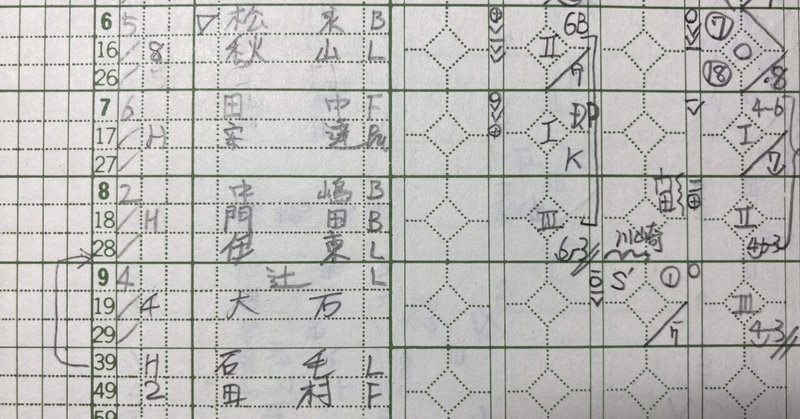 6 5 ▽ 松 永 B
16 8 秋 山 L II 6B 7 ⑦ ○ ⑱ 8
26
7 6 田 中 F
17 H 安 達 Bu I DP K 4-6 I 7
27
8 2 中 嶋 B
18 H 門 田 B III 6-3 II 4-6-3
28 伊 東 L 川崎
9 4 辻 L S ① III
19 4 大 石 7 4-3
29
39 H 石 毛 L
49 2 田 村 F